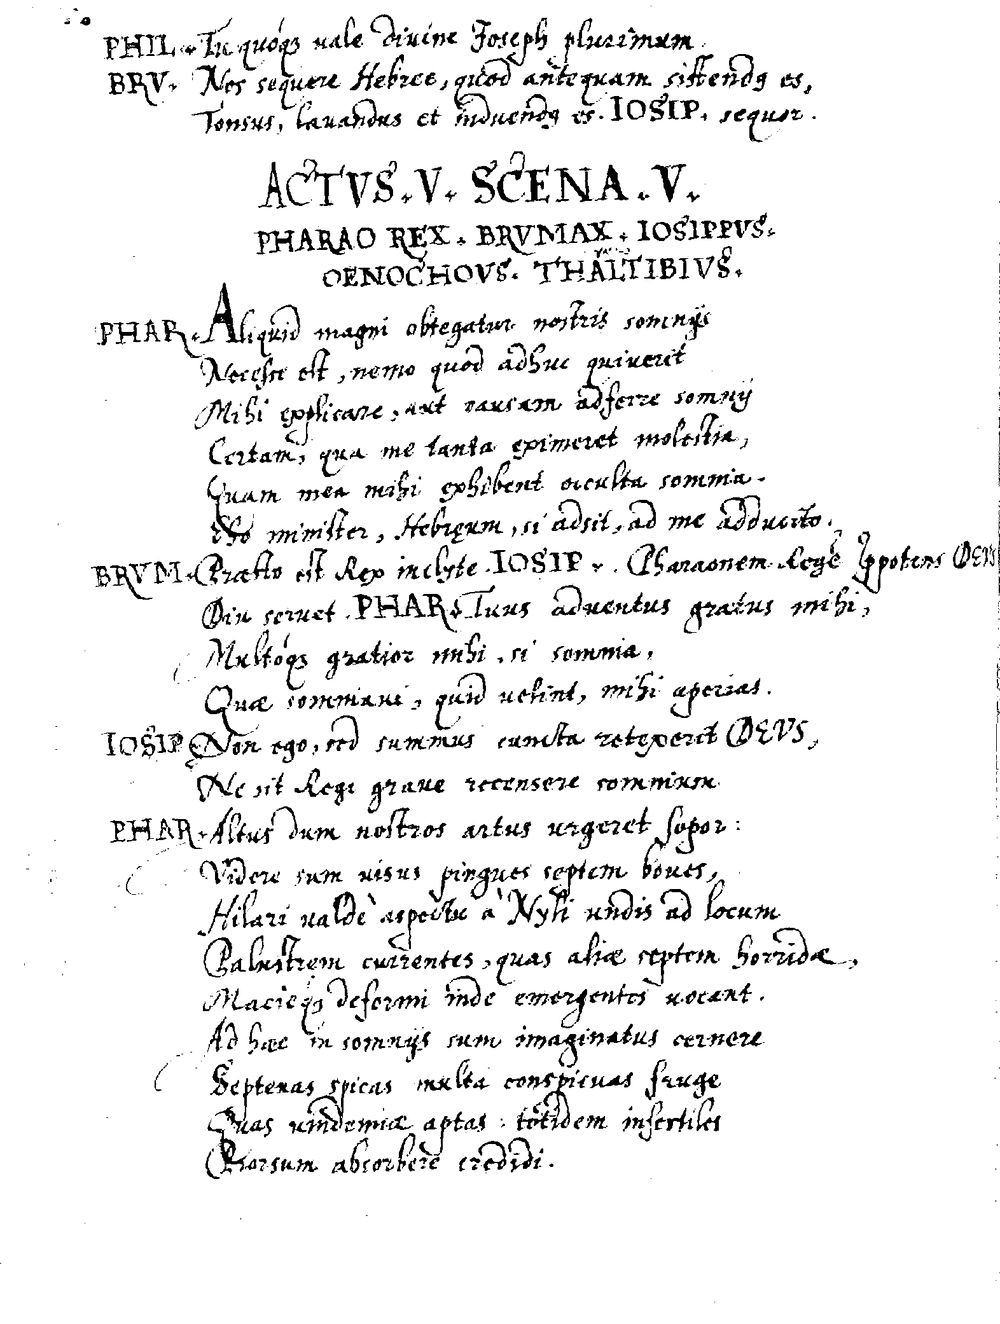 PHIL. Tu quóqs vale divine Joseph plurimum.
BRV. Nos sequere Hebree, quod antequam sistendg es,
Tonsus, lavandus et induendg es. IOSIP. sequor.
ACTVS. V. SCENA. V.
PHARAO REX. BRVMAX. IOSIPPVS.
OENOCHOVS. THALTIBIVS.
PHAR. Aliquid magni obtegatur nostris somnijs
Necesse est, nemo quod adhuc quiverit
Mihi explicare, aut causam adferre somnij
Certam, qua me tanta eximeret molestia,
Quam mea mihi exhibent occulta somnia.
Eho minister, Hebręum, si adsit, ad me adducito.
BRVM. Præsto est Rex inclyte. IOSIP. Pharaonem Regē ppotens DEVS
Diu servet. PHAR. Tuus adventus gratus mihi,
Multóqs gratior mihi, si somnia,
Quæ somniavi, quid velint, mihi aperias.
IOSIP. Non ego, sed summus cuncta retexerit DEVS,
Ne sit Regi grave recensere somnium
PHAR. Altus dum nostros artus urgeret sopor:
Videre sum visus pingues septem boves,
Hilari valdè aspectu à Nyli undis ad locum
Palustrem currentes, quas aliæ septem horridæ,
Macieqs deformi inde emergentes vocant.
Ad hæc in somnijs sum imaginatus cernere
Septenas spicas multa conspicuas fruge
Quas vindemiæ aptas: totidem infertiles
Rorsum absorbere credidi.